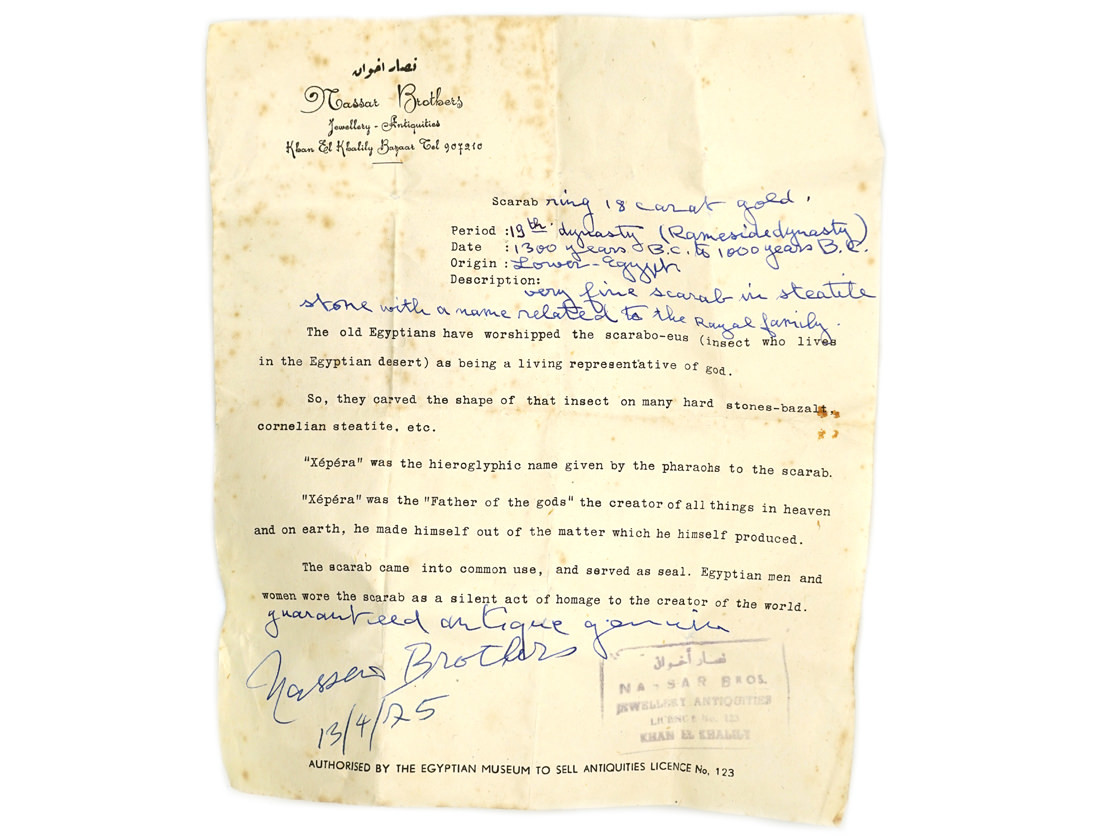 نصار اخوان
Nassar Brothers
Jewellery - Antiquities
Khan El Khalily Bazaar Tel 907210
Scarab ring 18 carat gold.
Period : 19th dynasty (Rameside dynasty)
Date : 1300 years B.C. to 1000 years B.C.
Origin : Lower-Egypt
Description:
very fine scarab in steatite
stone with a name related to the Royal family.
The old Egyptians have worshipped the scarabo-eus (insect who lives
in the Egyptian desert) as being a living representative of god.
So, they carved the shape of that insect on many hard stones-bazalt,
cornelian steatite. etc.
"Xépéra" was the hieroglyphic name given by the pharaohs to the scarab.
"Xépéra" was the "Father of the gods" the creator of all things in heaven
and on earth, he made himself out of the matter which he himself produced.
The scarab came into common use, and served as seal. Egyptian men and
women wore the scarab as a silent act of homage to the creator of the world.
guaranteed antique genuin
Nassar Brothers
13/4/75
نصار أخوان
NASSAR BROS.
JEWELLERY ANTIQUITIES
LICENCE No. 123
KHAN EL KHALILY
AUTHORISED BY THE EGYPTIAN MUSEUM TO SELL ANTIQUITIES LICENCE No, 123